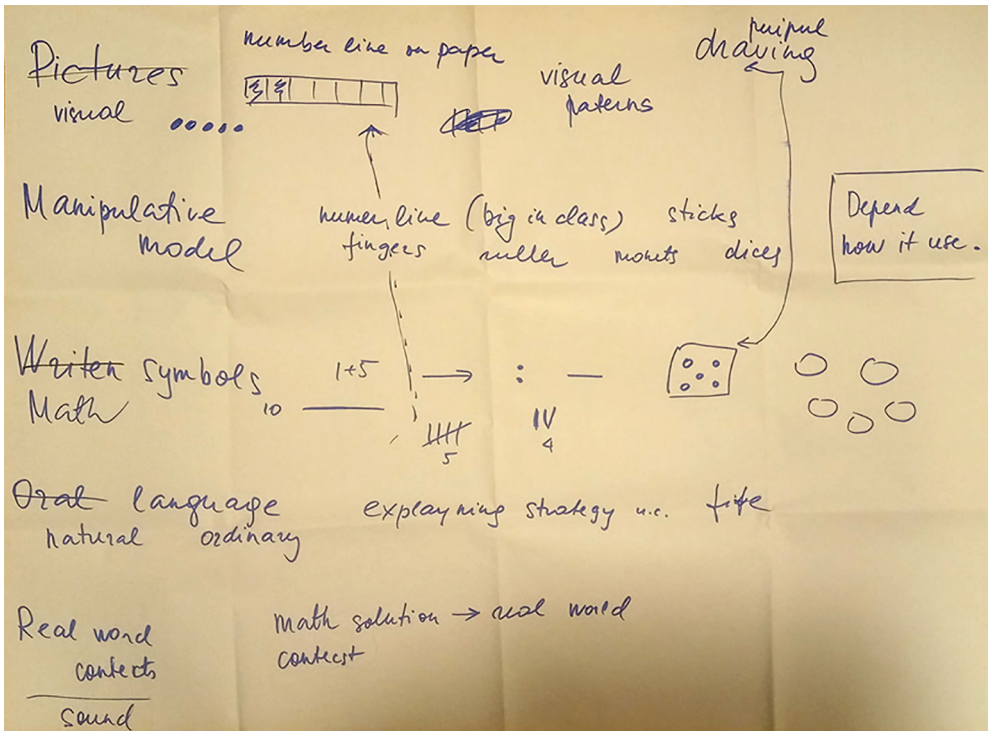 Pictures
visual
number line on paper
visual
paterns
puipul
draving
Manipulative
model
numer line (big in class) sticks
fingers ruller monets dices
Depend
how it use.
Writen symbols
Math
1+5
10
5
IV
4
:
Oral language
natural ordinary
explayning strategy
Real word
contects
sound
math solution → real world
contecst